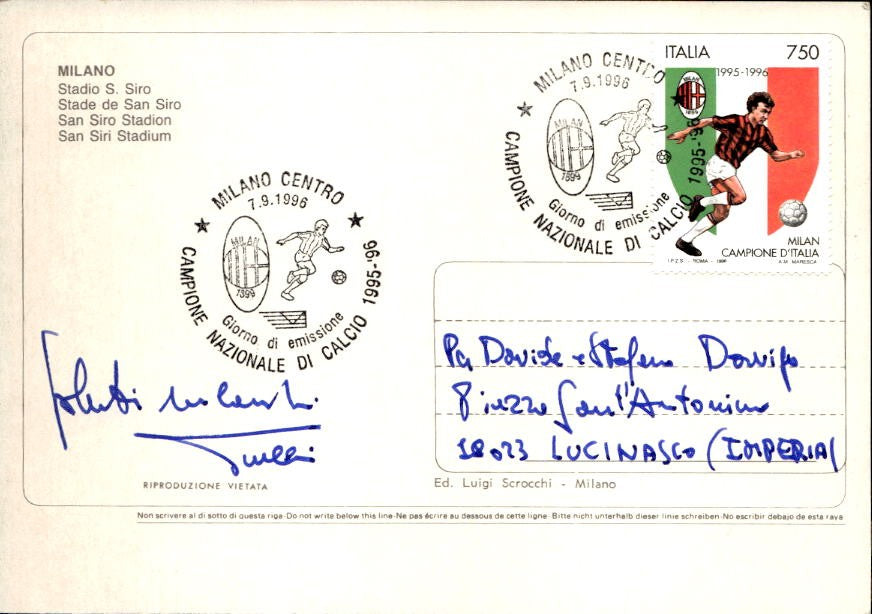 MILANO
Stadio S. Siro
Stade de San Siro
San Siro Stadion
San Siri Stadium
MILANO CENTRO
7.9.1996
MILAN
1899
Giorno di emissione
CAMPIONE NAZIONALE DI CALCIO 1995-'96
ITALIA 750
1995-1996
MILAN
1899
MILAN
CAMPIONE D'ITALIA
I.P.Z.S. - ROMA - 1996 A.M. MARESCA
MILANO CENTRO
7.9.1996
MILAN
1899
Giorno di emissione
CAMPIONE NAZIONALE DI CALCIO 1995-'96
Saluti milanisti
Per Davide e Stefano
Piazza Sant'Antonino
18023 LUCINASCO (IMPERIA)
RIPRODUZIONE VIETATA
Ed. Luigi Scrocchi - Milano
Non scrivere al di sotto di questa riga-Do not write below this line-Ne pas écrire au dessous de cette ligne-Bitte nicht unterhalb dieser linie schreiben-No escribir debajo de esta raya